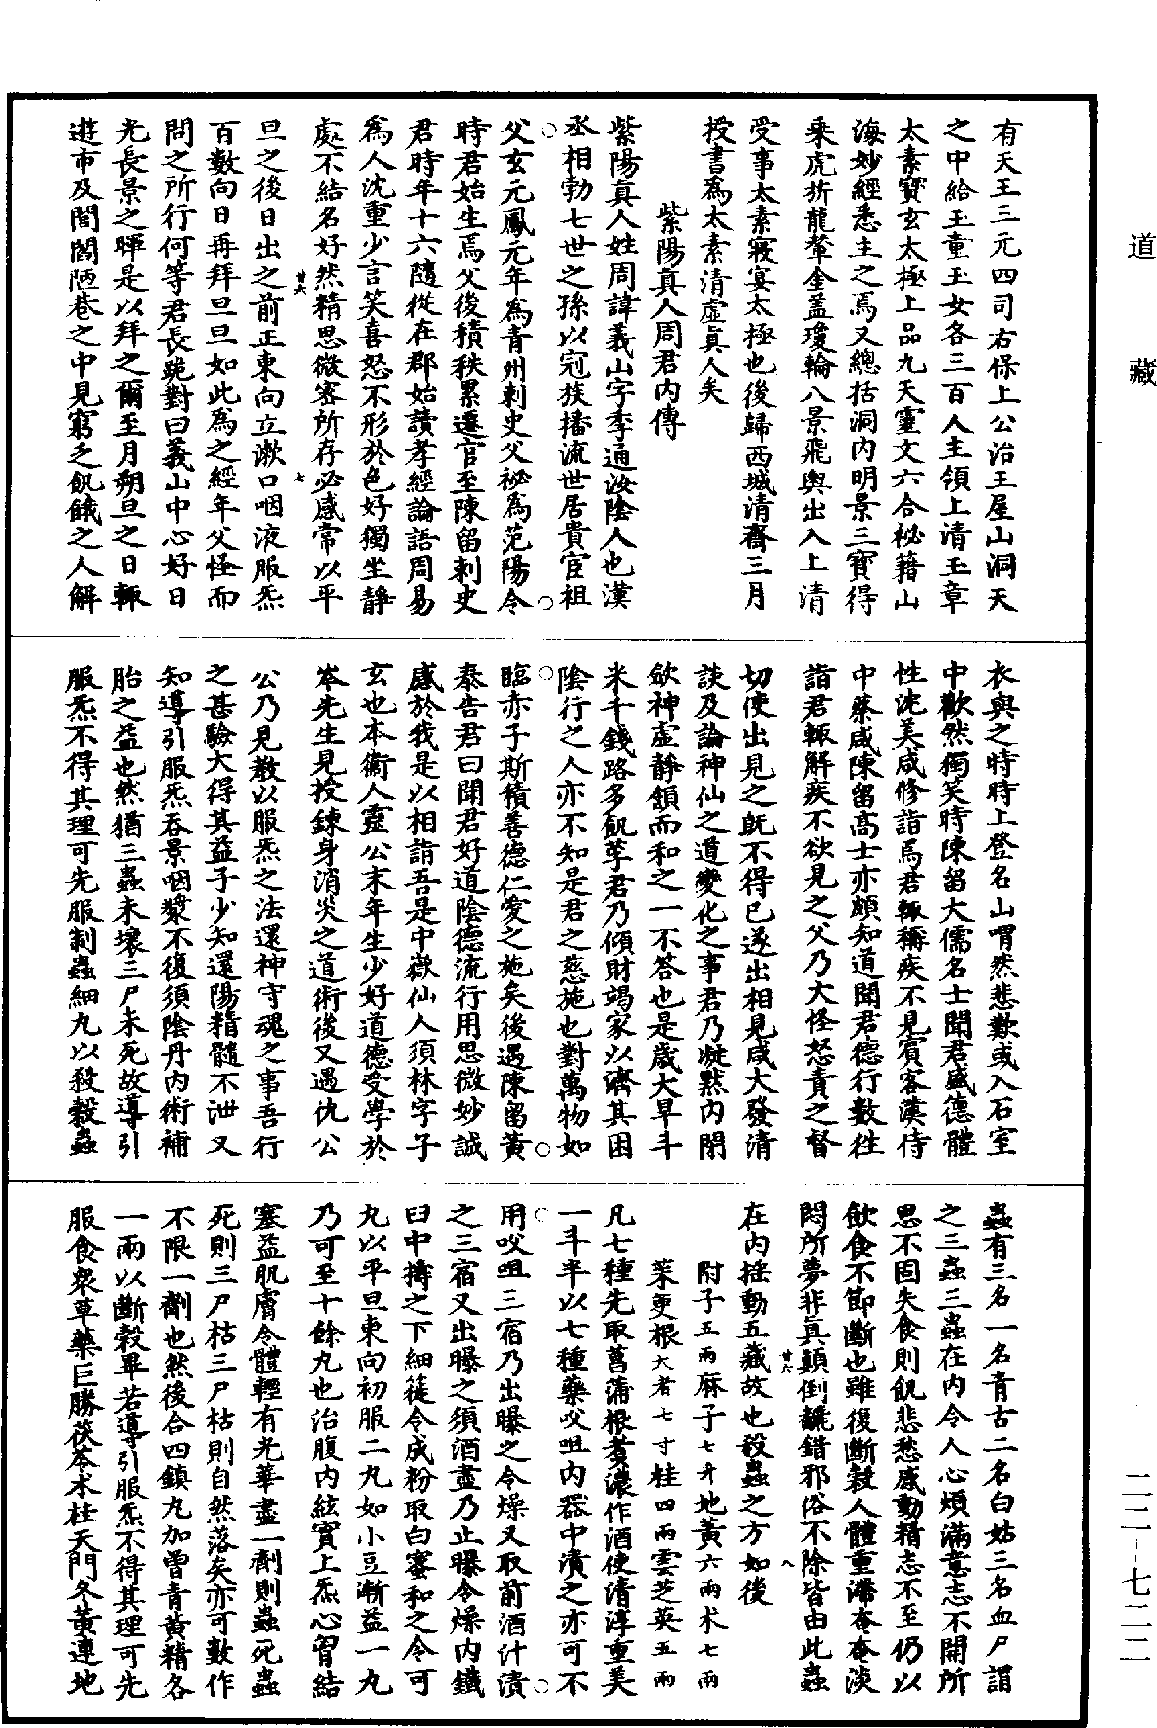 道藏
有天王三元四司右保上公治王屋山洞天
之中給玉童玉女各三百人主領上清玉章
太素寶玄太極上品九天靈文六合祕籍山
海妙經悉主之焉又總括洞內明景三寶得
乘虎旂龍輦金蓋瓊輪八景飛輿出入上清
受事太素寢宴太極也後歸西城清齋三月
授書爲太素清虛真人矣
紫陽真人周君內傳
紫陽真人姓周諱義山字季通汝陰人也漢
丞相勃七世之孫以冠族播流世居貴宦祖
父玄元鳳元年爲青州刺史父祕爲范陽令
時君始生焉父後積秩累遷官至陳留刺史
君時年十六隨從在郡始讀孝經論語周易
爲人沈重少言笑喜怒不形於色好獨坐靜
處不結名好然精思微密所存必感常以平
廿六
七
旦之後日出之前正東向立漱口咽液服炁
百數向日再拜旦旦如此爲之經年父怪而
問之所行何等君長跪對曰義山中心好日
光長景之暉是以拜之爾至月朔旦之日輒
遊市及閭閻陋巷之中見窮乏飢餓之人解
衣與之時時上登名山喟然悲歎或入石室
中歡然獨笑時陳留大儒名士聞君盛德體
性沈美咸修詣焉君輒稱疾不見賓客漢侍
中蔡咸陳留高士亦頗知道聞君德行數往
詣君輒解疾不欲見之父乃大怪怒責之督
切使出見之既不得已遂出相見咸大發清
談及論神仙之道變化之事君乃凝默內閑
斂神虛靜頷而和之一不答也是歲大旱斗
米千錢路多飢莩君乃傾財竭家以濟其困
陰行之人亦不知是君之慈施也對萬物如
臨赤子斯積善德仁愛之施矣後遇陳留黃
泰告君曰聞君好道陰德流行用思微妙誠
感於我是以相詣吾是中嶽仙人須林字子
玄也本衛人靈公末年生少好道德受學於
岑先生見授鍊身消災之道術後又遇仇公
公乃見教以服炁之法還神守魂之事吾行
之甚驗大得其益子少知還陽精髓不泄又
知導引服炁吞景咽漿不復須陰丹內術補
胎之益也然猶三蟲未壞三尸未死故導引
服炁不得其理可先服制蟲細丸以殺穀蟲
蟲有三名一名青古二名白姑三名血尸謂
之三蟲三蟲在內令人心煩滿意志不開所
思不固失食則飢悲愁感動精志不至仍以
飲食不節斷也雖復斷穀人體重滯奄奄淡
悶所夢非真顛倒飜錯邪俗不除皆由此蟲
廿六
八
在內搖動五藏故也殺蟲之方如後
附子五兩麻子七升地黃六兩朮七兩
茱萸根大者七寸桂四兩雲芝英五兩
凡七種先取菖蒲根煑濃作酒使清淳重美
一斗半以七種藥㕮咀內器中漬之亦可不
用㕮咀三宿乃出曝之令燥又取前酒汁漬
之三宿又出曝之須酒盡乃止曝令燥內鐵
臼中擣之下細簁令成粉取白蜜和之令可
丸以平旦東向初服二丸如小豆漸益一丸
乃可至十餘丸也治腹內絃實上炁心胷結
塞益肌膚令體輕有光華盡一劑則蟲死蟲
死則三尸枯三尸枯則自然落矣亦可數作
不限一劑也然後合四鎮丸加曾青黃精各
一兩以斷穀畢若導引服炁不得其理可先
服食衆草藥巨勝茯苓朮桂天門冬黃連地
二二一-七二二